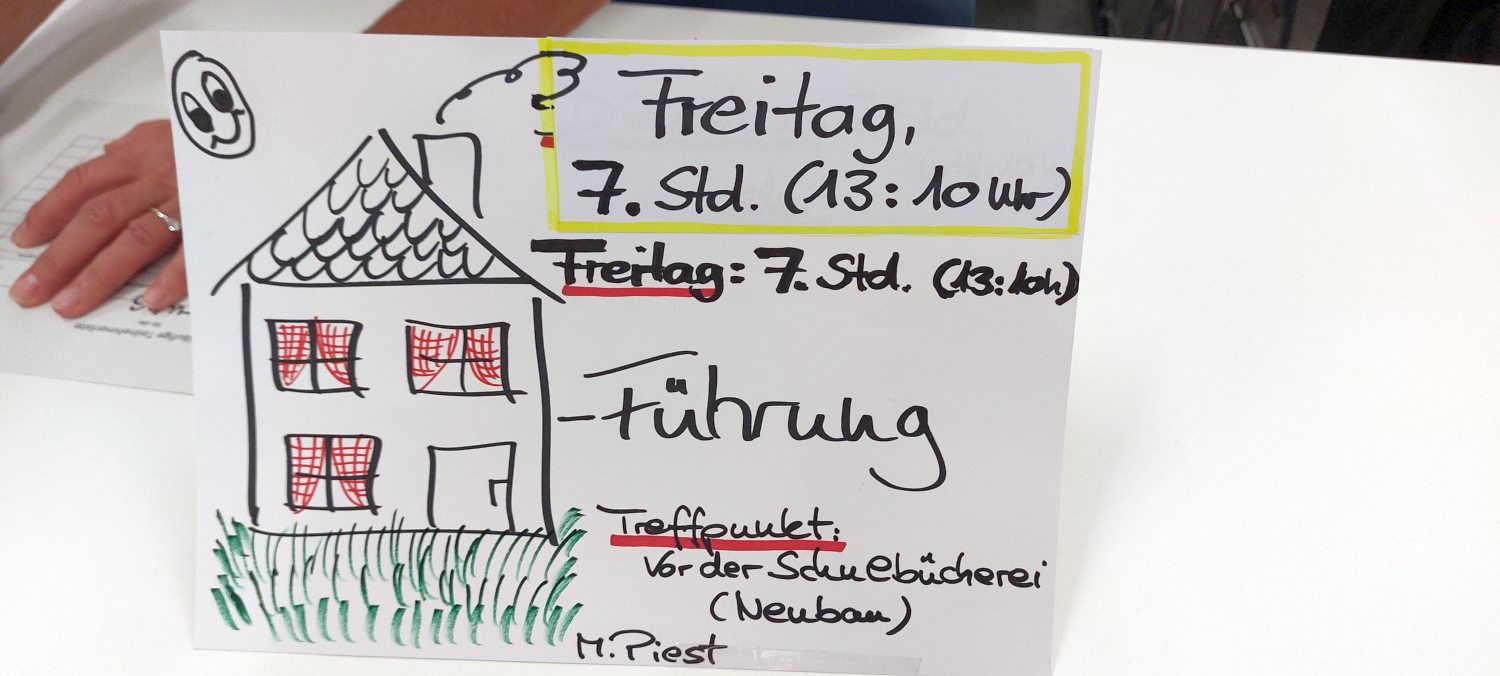 Freitag,
7. Std. (13:10 Uhr)
Freitag: 7. Std. (13:10h)
-Führung
Treffpunkt:
vor der Schulbücherei
(Neubau)
M. Piest